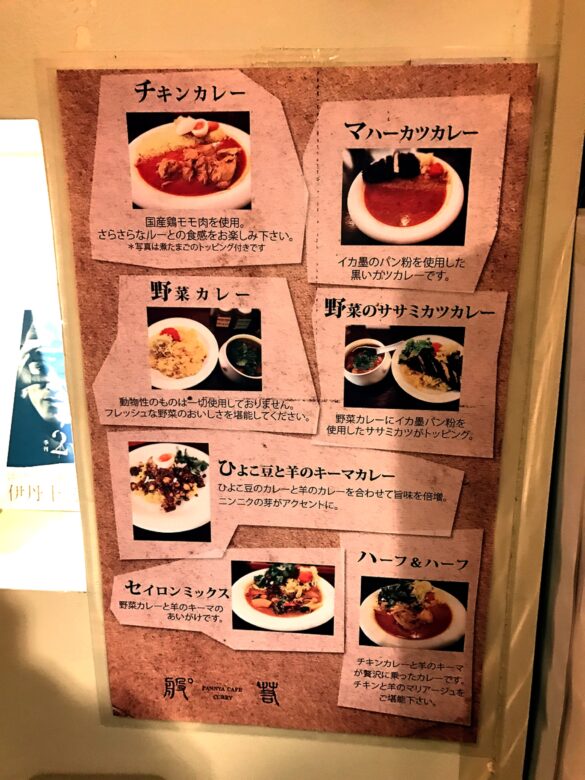 チキンカレー
国産鶏モモ肉を使用。
さらさらなルーとの食感をお楽しみ下さい。
＊写真は煮たまごのトッピング付きです
マハーカツカレー
イカ墨のパン粉を使用した
黒いカツカレーです。
野菜カレー
動物性のものは一切使用しておりません。
フレッシュな野菜のおいしさを堪能してください。
野菜のササミカツカレー
野菜カレーにイカ墨パン粉を
使用したササミカツがトッピング。
ひよこ豆と羊のキーマカレー
ひよこ豆のカレーと羊のカレーを合わせて旨味を倍増。
ニンニクの芽がアクセントに。
セイロンミックス
野菜カレーと羊のキーマの
あいがけです。
ハーフ＆ハーフ
チキンカレーと羊のキーマ
が贅沢に乗ったカレーです。
チキンと羊のマリアージュを
ご堪能下さい。
PANNYA CAFE
CURRY
伊丹十